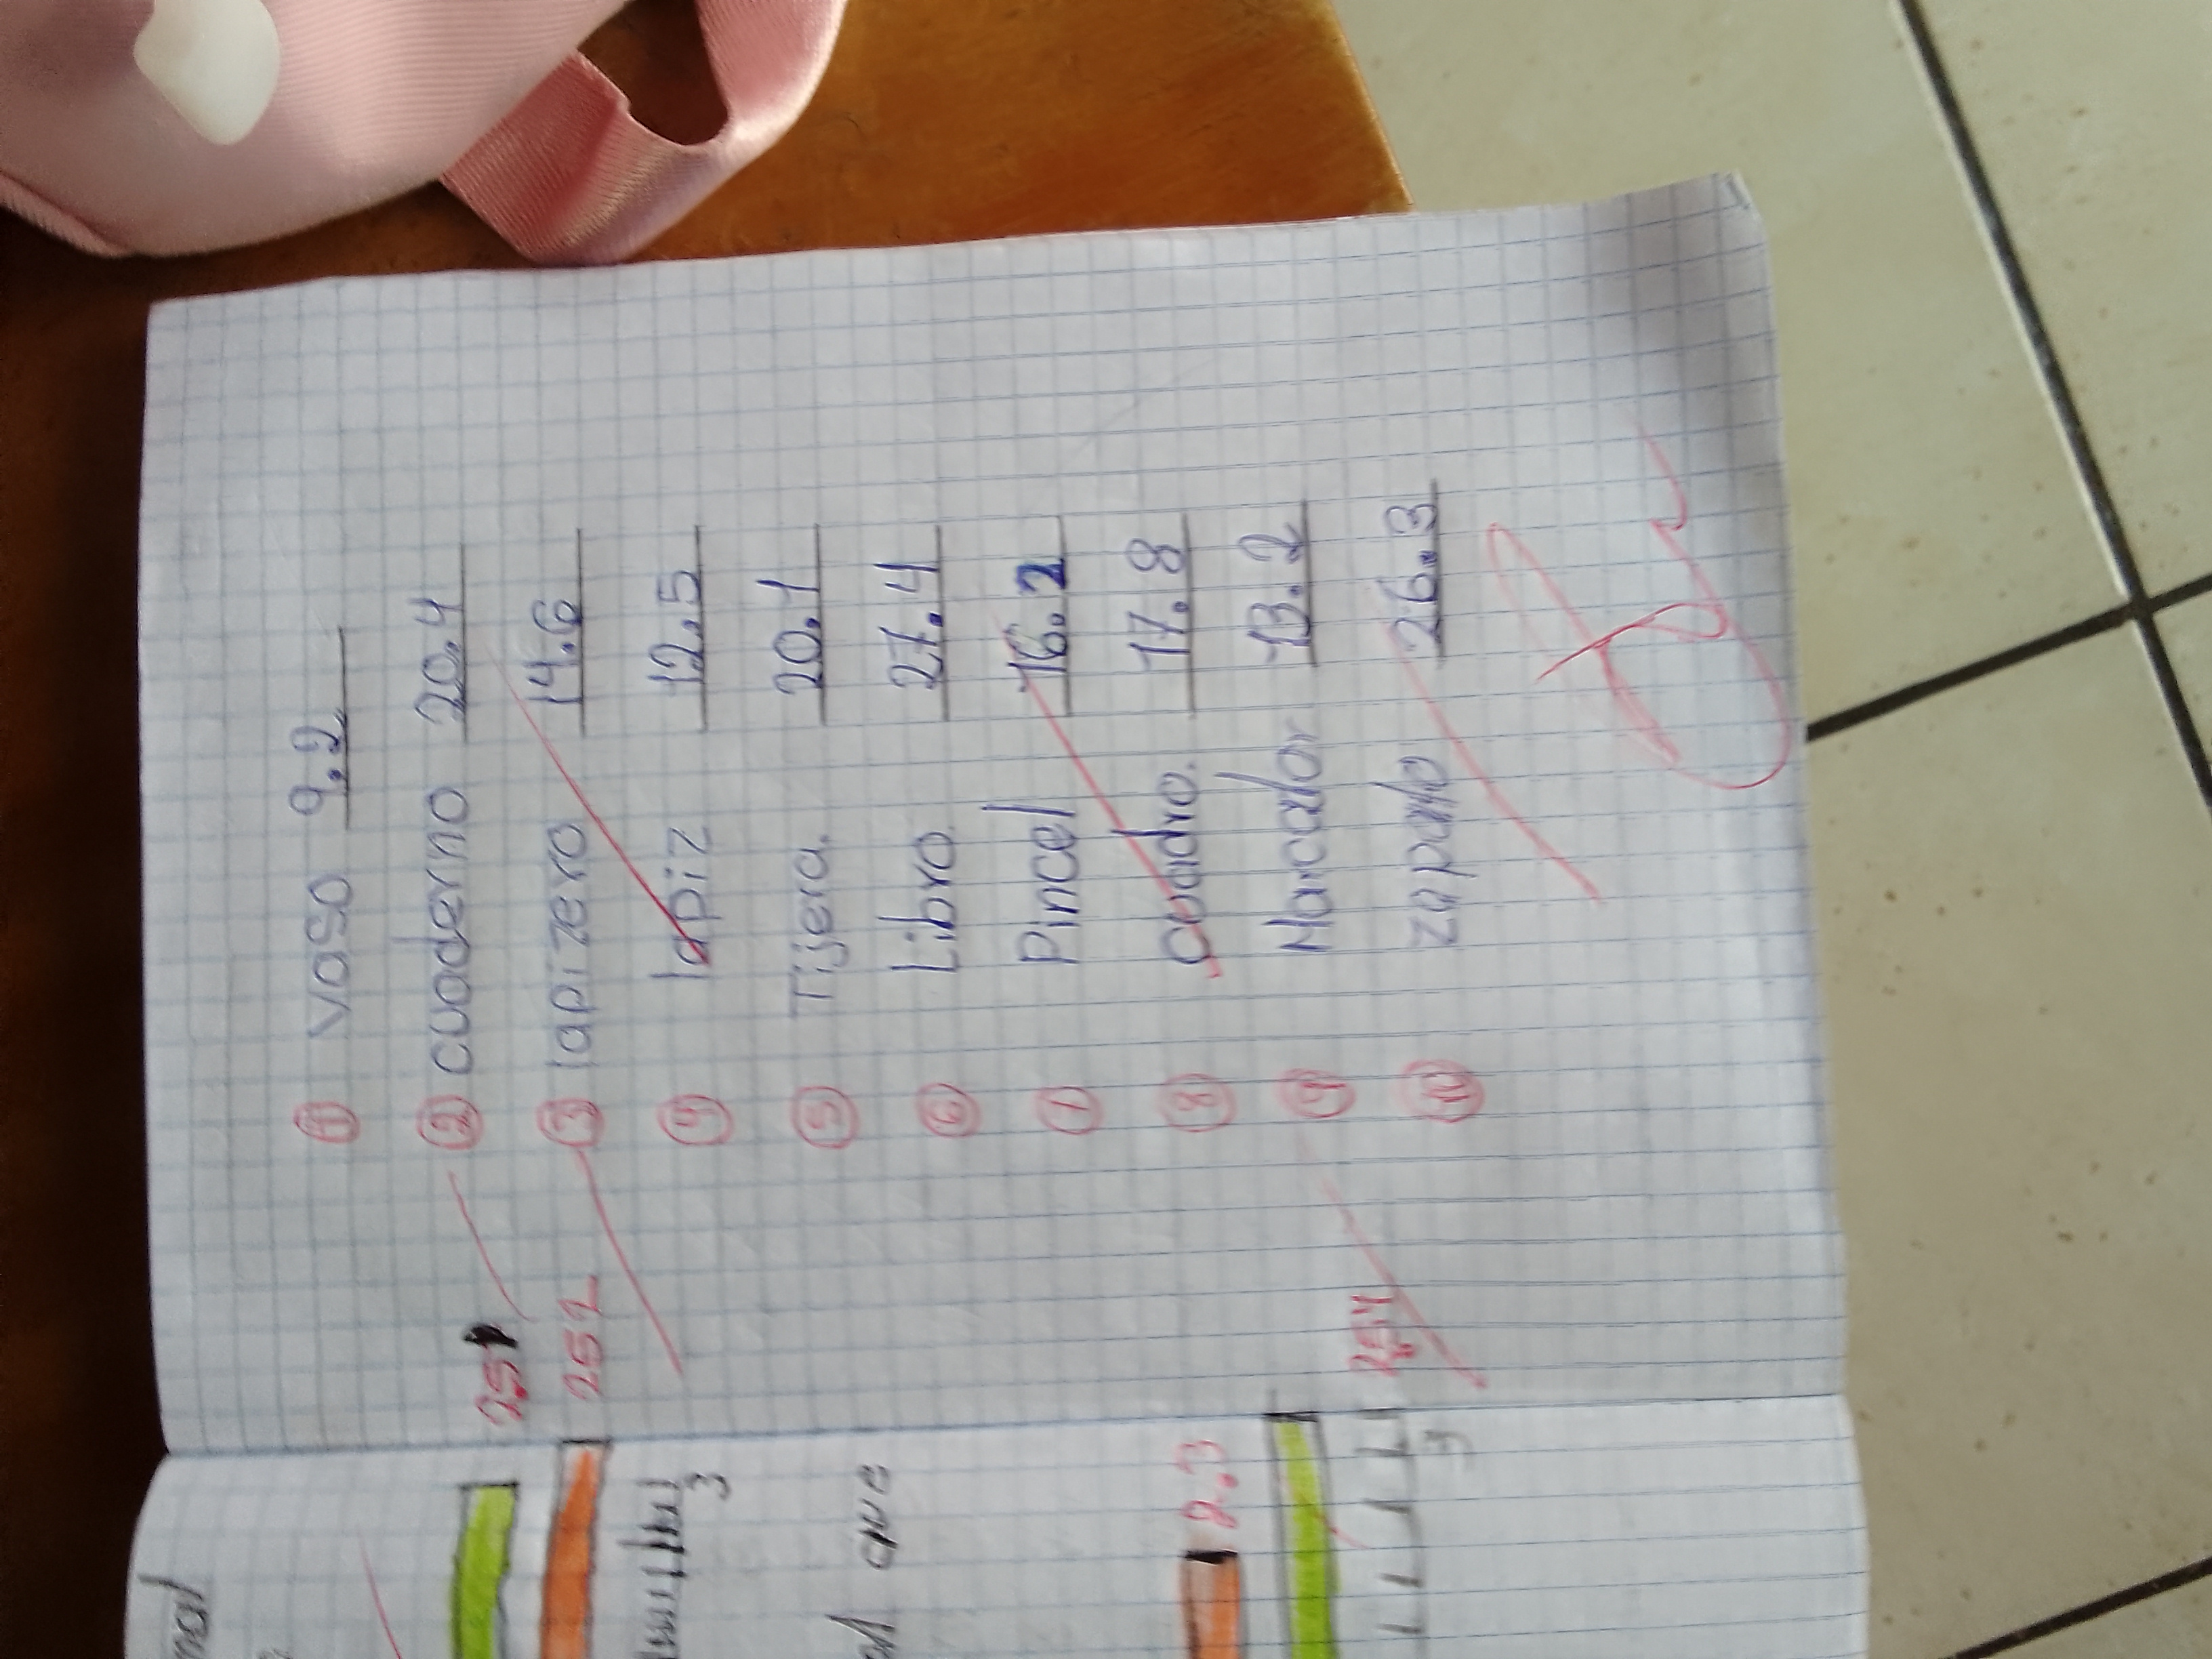 ① vaso 9.2
② cuaderno 20.4
③ lapizero 14.6
④ lapiz 12.5
⑤ Tijera. 20.1
⑥ Libro. 27.4
⑦ Pincel 16.2
⑧ cuadro. 17.8
⑨ Marcador 13.2
⑩ zapato 26.3
2.51
2.52
3
que
2.3
2.54
3